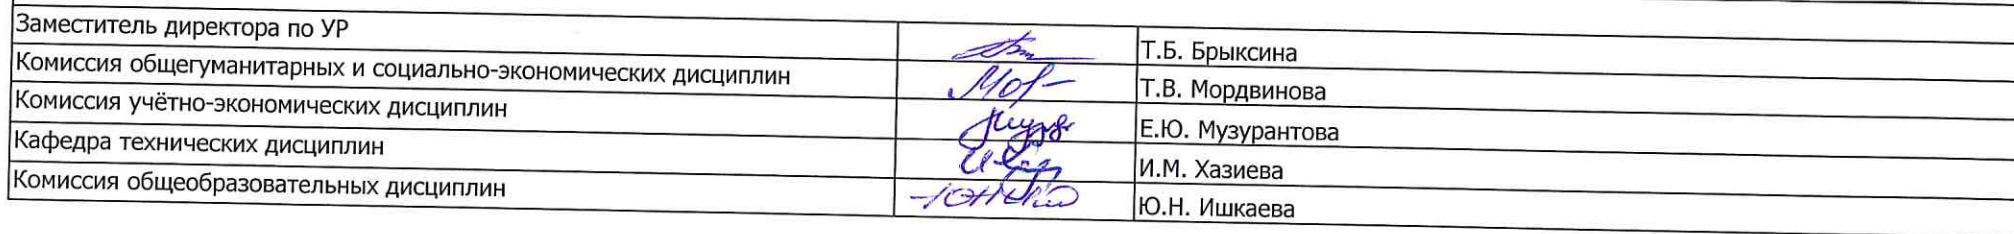 Заместитель директора по УР Т.Б. Брыксина
Комиссия общегуманитарных и социально-экономических дисциплин Т.В. Мордвинова
Комиссия учётно-экономических дисциплин Е.Ю. Музурантова
Кафедра технических дисциплин И.М. Хазиева
Комиссия общеобразовательных дисциплин Ю.Н. Ишкаева